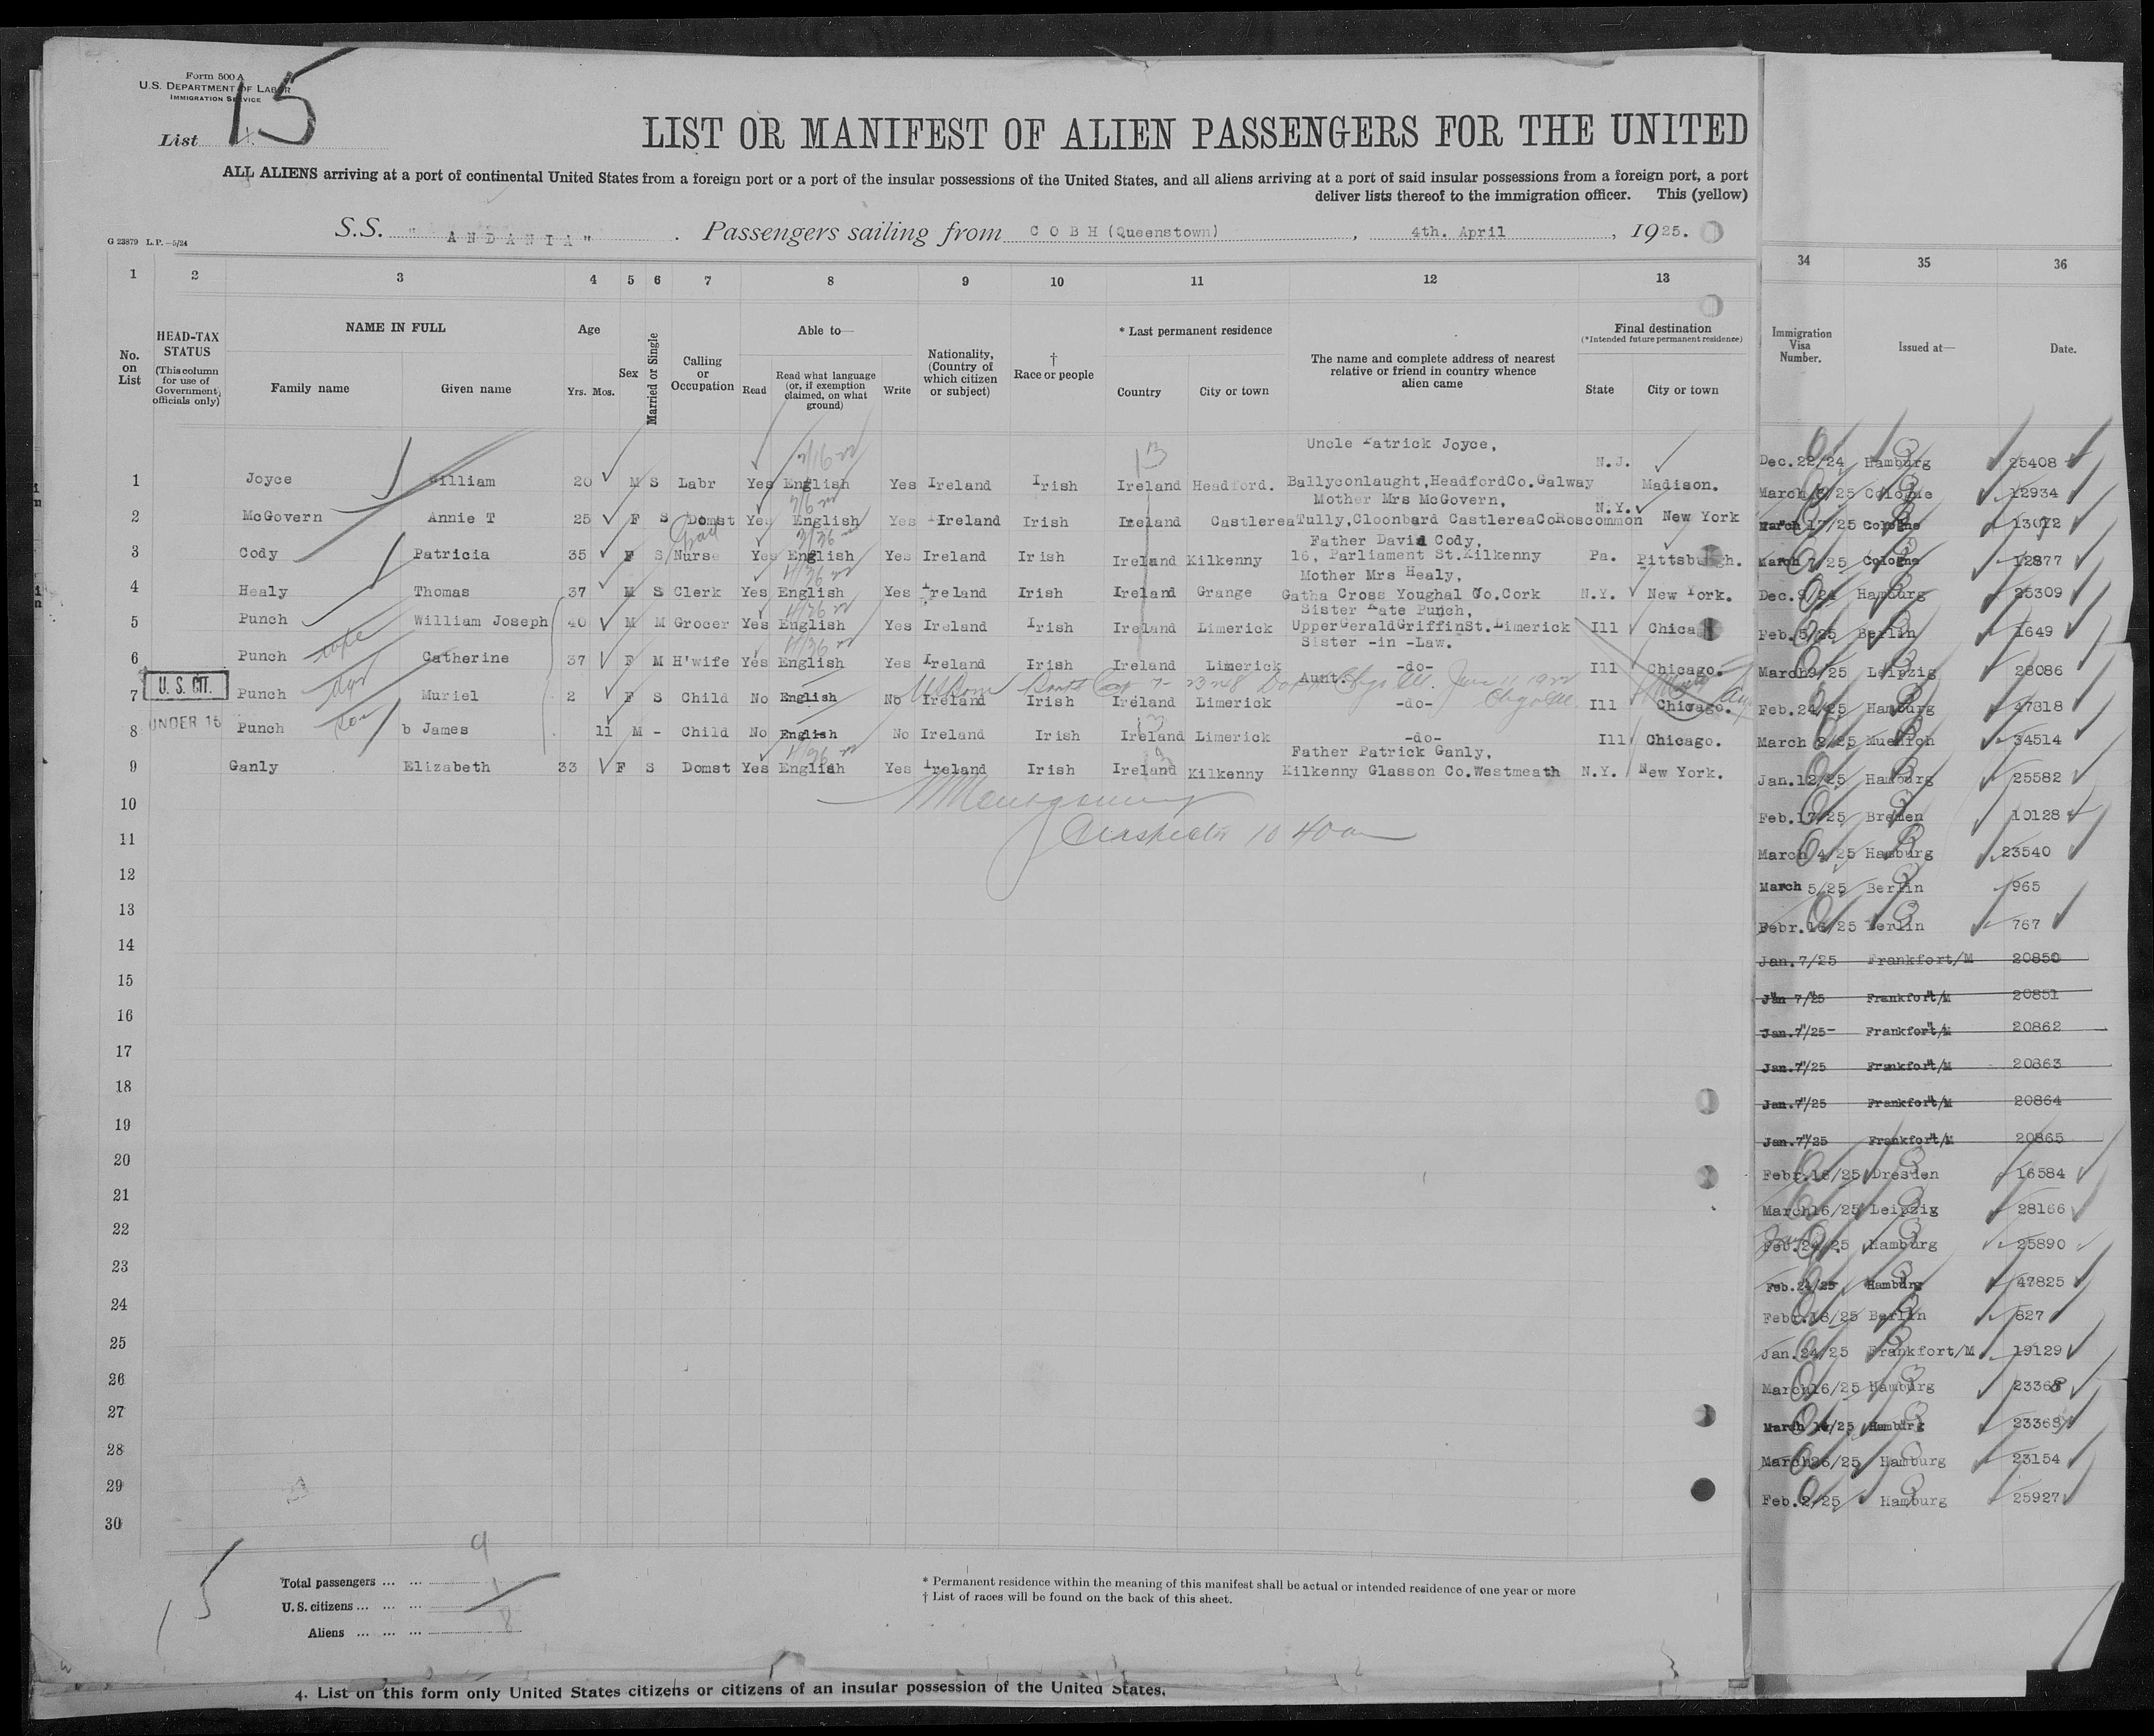 Form 500 A
U.S. DEPARTMENT OF LABOR
IMMIGRATION SERVICE
15
List
LIST OR MANIFEST OF ALIEN PASSENGERS FOR THE UNITED
ALL ALIENS arriving at a port of continental United States from a foreign port or a port of the insular possessions of the United States, and all aliens arriving at a port of said insular possessions from a foreign port, a port
deliver lists thereof to the immigration officer. This (yellow)
G 23879 L.P.—5/24
S.S. "ANDANIA". Passengers sailing from COBH (Queenstown), 4th. April, 1925.
1 2 3 4 5 6 7 8 9 10 11 12 13
No. on List
HEAD-TAX STATUS
(This column for use of Government officials only)
NAME IN FULL
Family name Given name
Age
Yrs. Mos.
Sex
Married or Single
Calling or Occupation
Able to—
Read
Read what language (or, if exemption claimed, on what ground)
Write
Nationality, (Country of which citizen or subject)
† Race or people
* Last permanent residence
Country City or town
The name and complete address of nearest relative or friend in country whence alien came
Final destination
(*Intended future permanent residence)
State City or town
Uncle Patrick Joyce,
1 Joyce William 20 M S Labr Yes English Yes Ireland Irish Ireland Headford. Ballyconlaught,HeadfordCo.Galway N.J. Madison.
Mother Mrs McGovern,
2 McGovern Annie T 25 F S Domst Yes English Yes Ireland Irish Ireland Castlerea Tully,Cloonbard CastlereaCoRoscommon N.Y. New York
Father David Cody,
3 Cody Patricia 35 F S Nurse Yes English Yes Ireland Irish Ireland Kilkenny 16, Parliament St.Kilkenny Pa. Pittsburgh.
Mother Mrs Healy,
4 Healy Thomas 37 M S Clerk Yes English Yes Ireland Irish Ireland Grange Gatha Cross Youghal Co.Cork N.Y. New York.
Sister Kate Punch,
5 Punch William Joseph 40 M M Grocer Yes English Yes Ireland Irish Ireland Limerick UpperGeraldGriffinSt.Limerick Ill Chica
Sister -in -Law.
6 Punch wife Catherine 37 F M H'wife Yes English Yes Ireland Irish Ireland Limerick -do- Ill Chicago.
Aunt.
U. S. CIT.
7 Punch Muriel 2 F S Child No English No Ireland Irish Ireland Limerick -do- Ill Chicago.
UNDER 16
8 Punch son b James 11 M - Child No English No Ireland Irish Ireland Limerick -do- Ill Chicago.
Father Patrick Ganly,
9 Ganly Elizabeth 33 F S Domst Yes English Yes Ireland Irish Ireland Kilkenny Kilkenny Glasson Co.Westmeath N.Y. New York.
10
Montgomery
11
Inspector 10 40am
12
13
14
15
16
17
18
19
20
21
22
23
24
25
26
27
28
29
30
15
Total passengers ... ... 9
U.S. citizens ... ... ... 1
Aliens ... ... ... 8
* Permanent residence within the meaning of this manifest shall be actual or intended residence of one year or more
† List of races will be found on the back of this sheet.
4. List on this form only United States citizens or citizens of an insular possession of the United States.
34 35 36
Immigration Visa Number. Issued at— Date.
Dec.22/24 Hamburg 25408
March /25 Cologne 12934
March 17/25 Cologne 13072
March 7/25 Cologne 12877
Dec.9/24 Hamburg 25309
Feb.5/25 Berlin 1649
March9/25 Leipzig 28086
Feb.24/25 Hamburg 47818
March 2/25 Muenich 34514
Jan.12/25 Hamburg 25582
Feb.17/25 Bremen 10128
March 4/25 Hamburg 23540
March 5/25 Berlin 965
Febr.16/25 Berlin 767
Jan.7/25 Frankfort/M 20850
Jan 7/25 Frankfort/M 20851
Jan.7/25 Frankfort/M 20862
Jan.7/25 Frankfort/M 20863
Jan.7/25 Frankfort/M 20864
Jan.7/25 Frankfort/M 20865
Febr.16/25 Dresden 16584
March16/25 Leipzig 28166
Feb.24/25 Hamburg 25890
Feb.24/25 Hamburg 47825
Febr.18/25 Berlin 827
Jan.24/25 Frankfort/M 19129
March16/25 Hamburg 23368
March 16/25 Hamburg 23368
March26/25 Hamburg 23154
Feb.2/25 Hamburg 25927